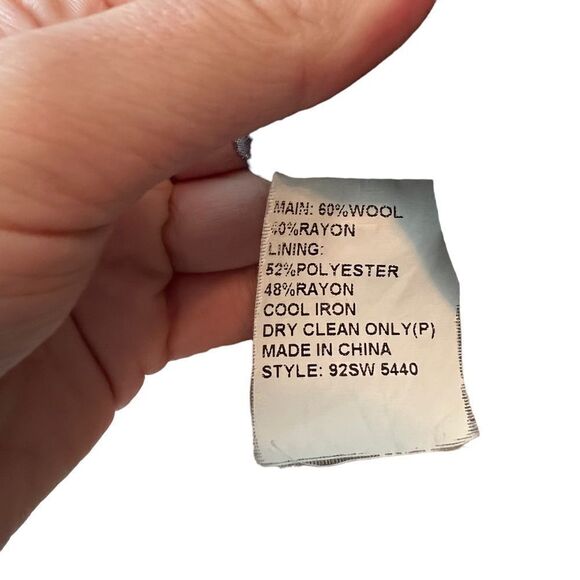 MAIN: 60%WOOL
40%RAYON
LINING:
52%POLYESTER
48%RAYON
COOL IRON
DRY CLEAN ONLY(P)
MADE IN CHINA
STYLE: 92SW 5440